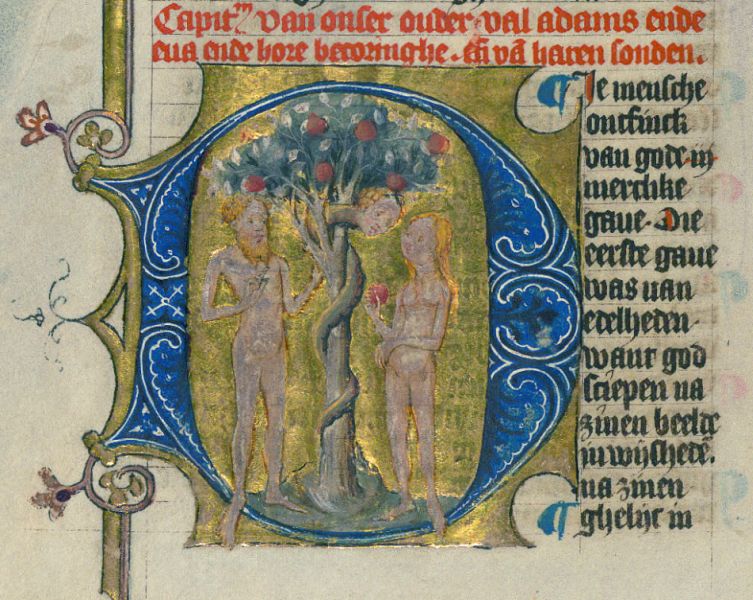 Capitm van onser ouder val adams ende
eua ende hore becoringhe. eñ vā haren sonden.
Ie mensche
ontfinck
van gode iij
merclike
gaue. Die
eerste gaue
was uan
edelheden
want god
sciepen na
zinen beelde
in wijshede.
na zinen
ghelijc in